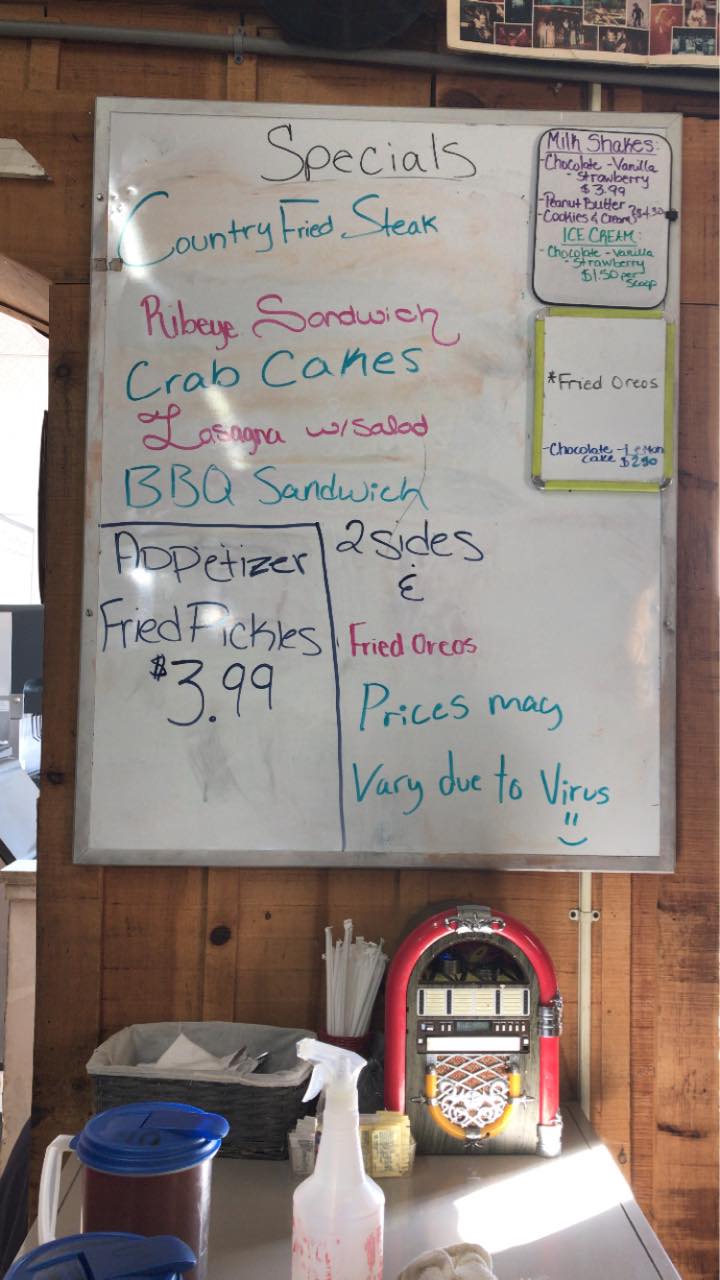 Specials
Country Fried Steak
Ribeye Sandwich
Crab Cakes
Lasagna w/Salad
BBQ Sandwich
Appetizer
Fried Pickles
$3.99
2 sides
&
Fried Oreos
Prices may
Vary due to Virus
Milk Shakes:
-Chocolate -Vanilla
-Strawberry
$3.99
-Peanut Butter
-Cookies & Cream
ICE CREAM:
-Chocolate -Vanilla
-Strawberry
$1.50 per
Scoop
*Fried Oreos
-Chocolate -Lemon
Cake $2.50